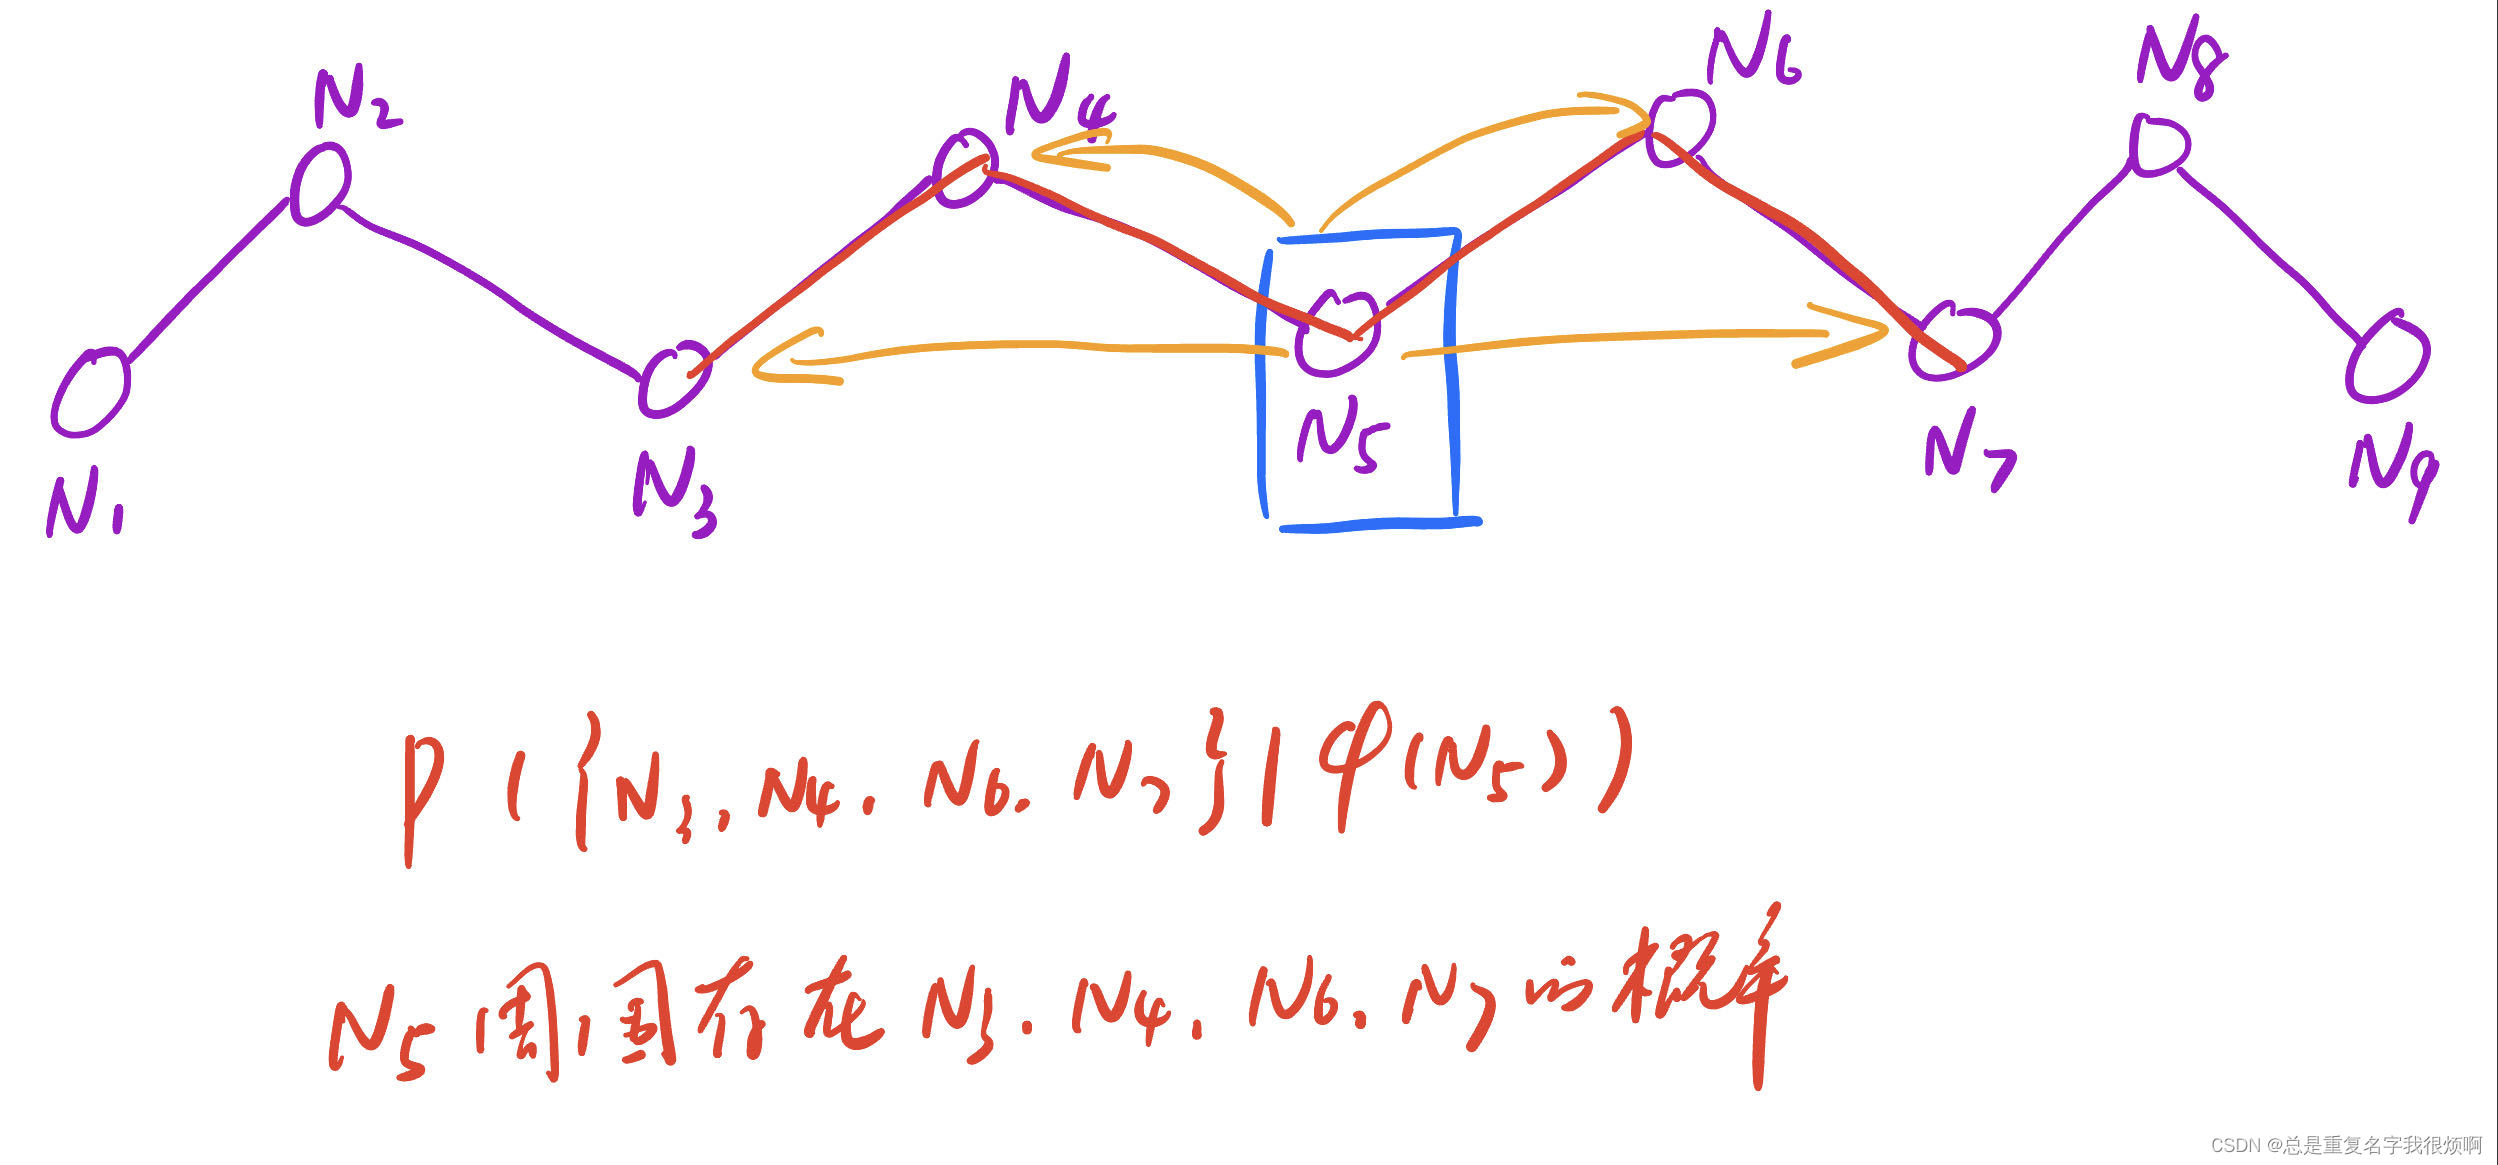 N2 N4 N6 N8
N1 N3 N5 N7 N9
P({N3, N4, N6, N7} | φ(N5))
N5 周围存在 N3, N4, N6, N7 的概率
CSDN @总是重复名字我很烦啊